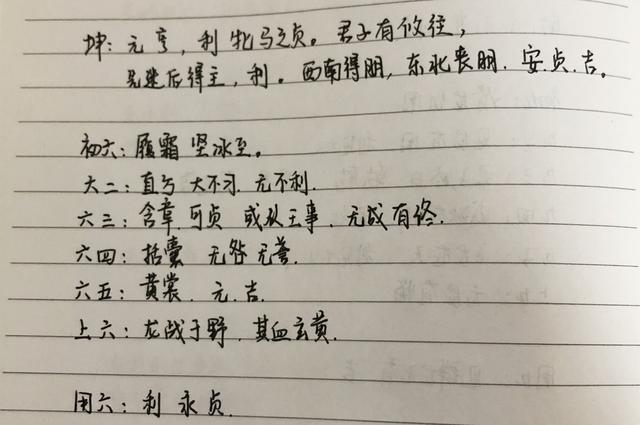 坤：元亨，利牝马之贞。君子有攸往，
先迷后得主，利。西南得朋，东北丧朋．安．贞．吉。
初六：履霜 坚冰至。
大二：直方 大不习．无不利．
六三：含章．可贞 或从王事．无成有终．
六四：括囊 无咎无誉．
六五：黄裳．元．吉．
上六：龙战于野．其血玄黄．
用六：利永贞．